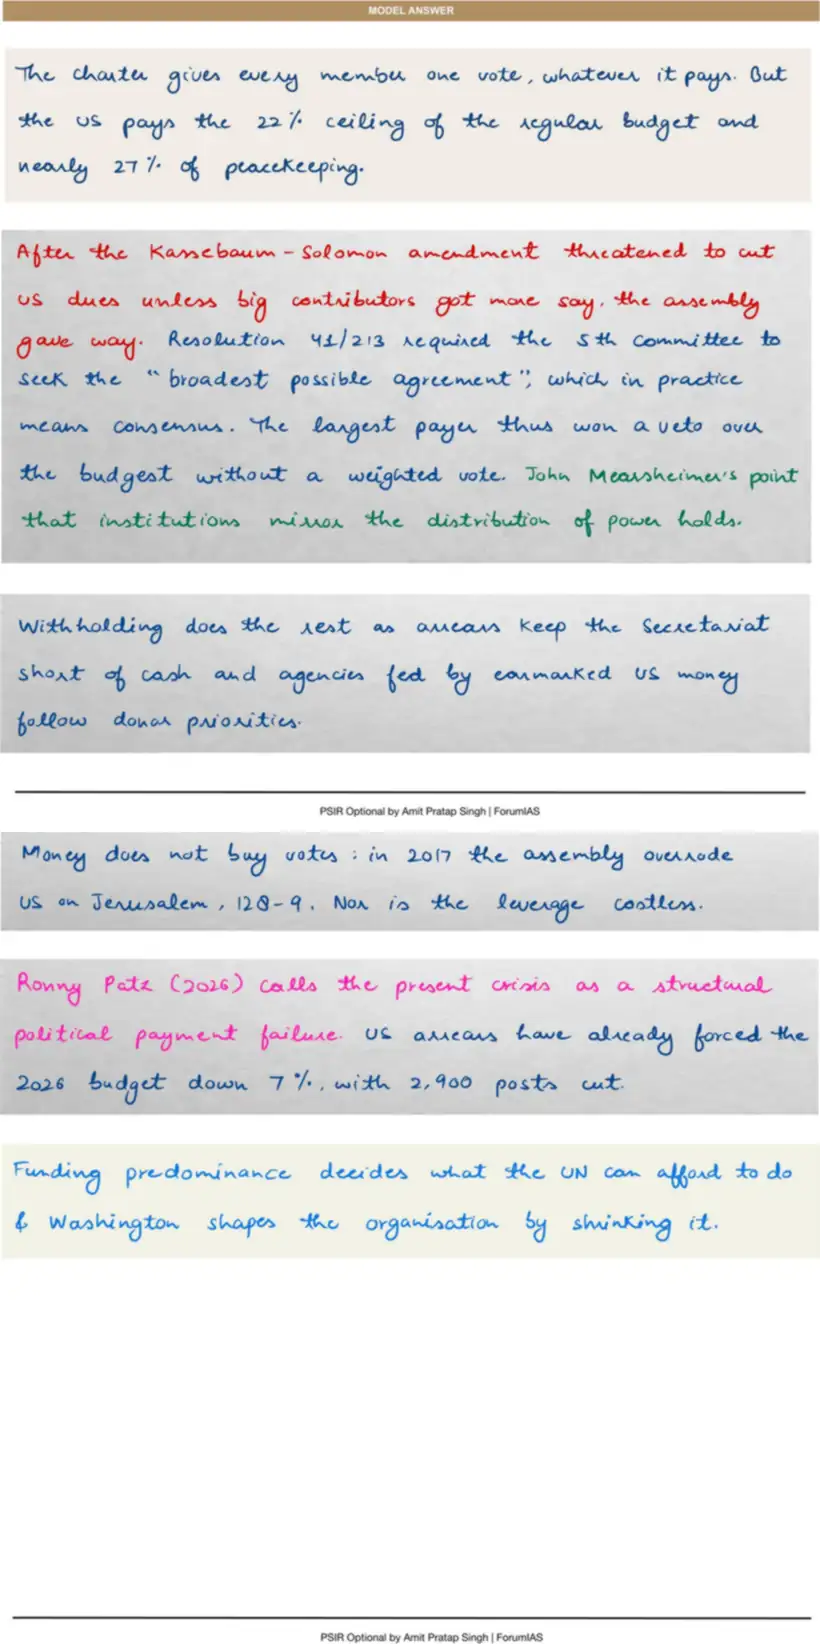 MODEL ANSWER
The Charter gives every member one vote, whatever it pays. But
the US pays the 22% ceiling of the regular budget and
nearly 27% of peacekeeping.
After the Kassebaum - Solomon amendment threatened to cut
US dues unless big contributors got more say, the assembly
gave way. Resolution 41/213 required the 5th committee to
seek the "broadest possible agreement", which in practice
means consensus. The largest payer thus won a veto over
the budgest without a weighted vote. John Mearsheimer's point
that institutions mirror the distribution of power holds.
Withholding does the rest as arrears keep the Secretariat
short of cash and agencies fed by earmarked US money
follow donar priorities.
PSIR Optional by Amit Pratap Singh | ForumIAS
Money does not buy votes : in 2017 the assembly overrode
US on Jerusalem, 128-9. Nor is the leverage costless.
Ronny Patz (2026) calls the present crisis as a structural
political payment failure. US arrears have already forced the
2026 budget down 7%, with 2,900 posts cut.
Funding predominance decides what the UN can afford to do
& Washington shapes the organisation by shrinking it.
PSIR Optional by Amit Pratap Singh | ForumIAS